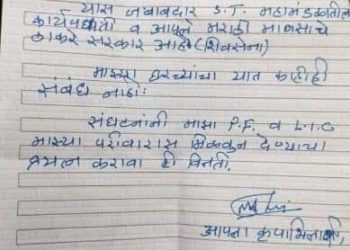 यास जबाबदार S.T. महामंडळातील
कार्यपध्दती व आपले मराठी माणसाचे
ठाकरे सरकार आहे (शिवसेना)
माझ्या घरच्यांचा यात काहीही
संबंध नाही.
संघटनांनी माझा P.F. व L.I.C
माझ्या परीवारास मिळवुन देण्याचा
प्रयत्न करावा ही विनंती.
आपला कृपाभिलाषी,